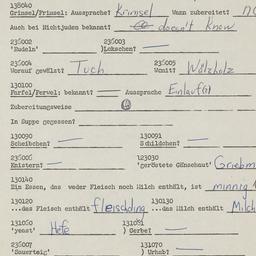 138040
Grimsel/Primsel: Aussprache? Krimsel Wann zubereitet?
Auch bei Nichtjuden bekannt? doesn't know
235002 235003
'Nudeln' )Lokschen?
235004 235005
Vorauf gewälzt? Tuch Womit? Wälzholz
130100
Farfel/Fervel: bekannt? Aussprache Einlauf(s)
Zubereitungsweise
In Suppe gegessen?
130090 130091
Scheibchen? Schildchen?
235006 123030
Knistern? 'geröstete Gänsehaut'
130140
Ein Essen, das weder Fleisch noch Milch enthält, ist minnig
130120 130130
...das Fleisch enthält fleischding ...das Milch enthält Milch
131060 131061
'yeast' Hefe ) Gerbe?
235007 131070
'Sauerteig' ) Urhab?